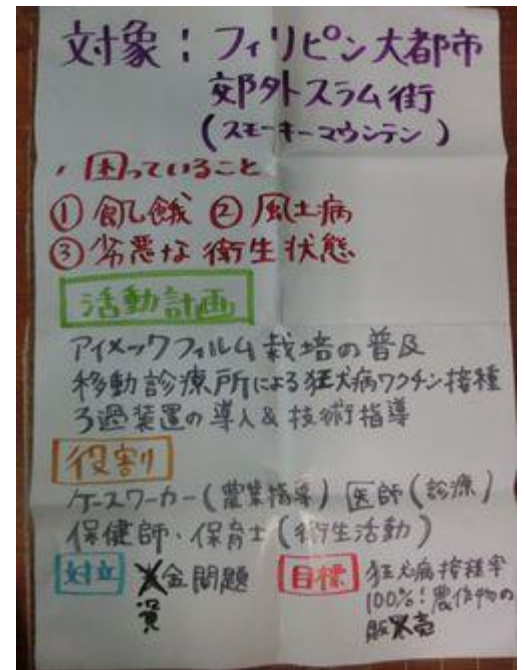 対象：フィリピン大都市
郊外スラム街
(スモーキーマウンテン)
・困っていること
① 飢餓 ② 風土病
③ 劣悪な衛生状態
活動計画
アイメックフィルム栽培の普及
移動診療所による狂犬病ワクチン接種
ろ過装置の導入＆技術指導
役割
ケースワーカー(農業指導) 医師(診療)
保健師・保育士(衛生活動)
対立 資金問題
目標 狂犬病接種率
100%！農作物の
販売